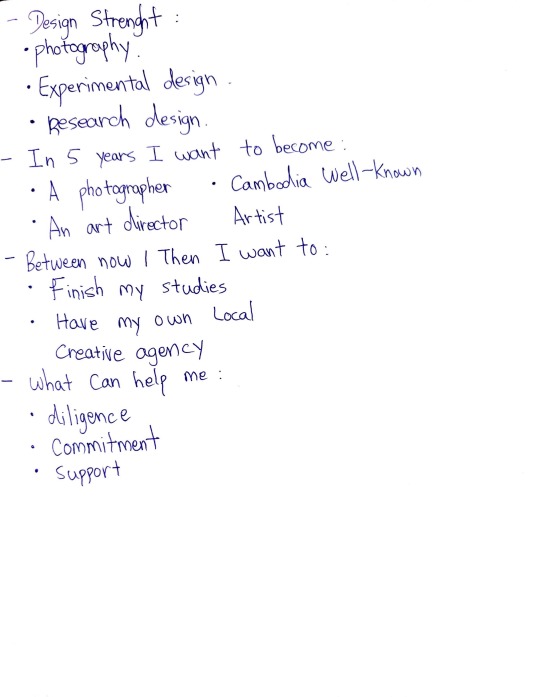 - Design Strenght :
• photography.
• Experimental design.
• Research design.
- In 5 years I want to become :
• A photographer • Cambodia Well-Known
• An art director Artist
- Between now / Then I want to :
• Finish my studies
• Have my own Local
Creative agency
- What Can help me :
• diligence
• Commitment
• Support